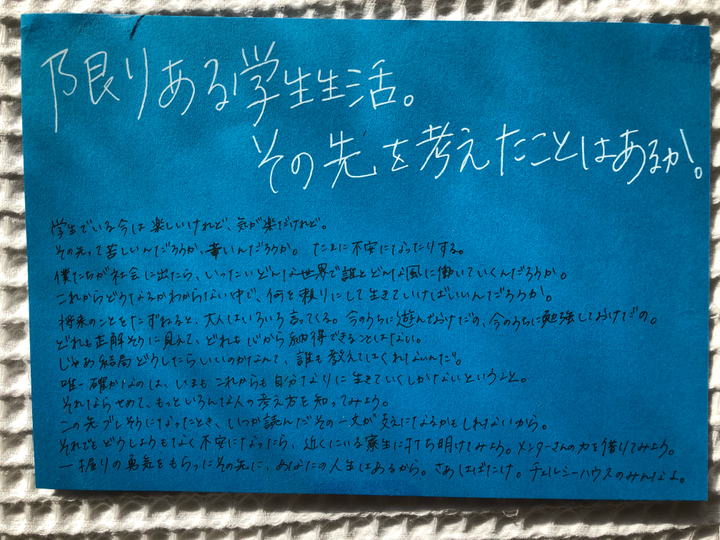 限りある学生生活。
その先を考えたことはあるか。
学生でいる今は楽しいけれど、気が楽だけれど。
その先って苦しいんだろうか、辛いんだろうか。たまに不安になったりする。
僕たちが社会に出たら、いったいどんな世界で誰とどんな風に働いていくんだろうか。
これからどうなるかわからない中で、何を頼りにして生きていけばいいんだろうか。
将来のことをたずねると、大人はいろいろ言ってくる。今のうちに遊んでおけだの、今のうちに勉強しておけだの。
どれも正解そうに見えて、どれも心から納得できることはない。
じゃあ結局どうしたらいいのかなんて、誰も教えてはくれないんだ。
唯一確かなのは、いまもこれからも自分なりに生きていくしかないということ。
それならせめて、もっといろんな人の考え方を知ってみよう。
この先ブレそうになったとき、いつか読んだその一文が支えになるかもしれないから。
それでもどうしようもなく不安になったら、近くにいる寮生に打ち明けてみよう。メンターさんの力を借りてみよう。
一握りの勇気をもらったその先に、あなたの人生はあるから。さあはばたけ。チェルシーハウスのみんなよ。